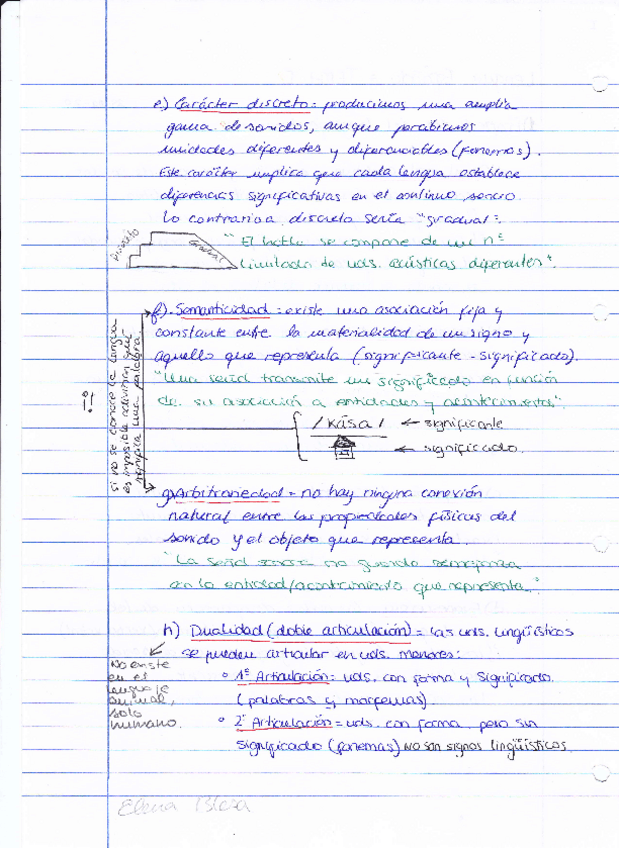 e) Carácter discreto = producimos una amplia
gama de sonidos, aunque percibimos
unidades diferentes y diferenciables (fonemas).
Este carácter implica que cada lengua establece
diferencias significativas en el continuo sonoro.
Lo contrario a discreto sería "gradual".
Discreto
Gradual
"El habla se compone de un nº
limitado de uds. acústicas diferentes".
f). Semanticidad = existe una asociación fija y
constante entre la materialidad de un signo y
aquello que representa (significante - significado).
"Una señal transmite un significado en función
de su asociación a entidades y acontecimientos".
/kása/ ← significante
← significado.
¡!
si no se conoce la lengua
es imposible adivinar qué
significa una palabra.
g) Arbitrariedad = no hay ninguna conexión
natural entre las propiedades físicas del
sonido y el objeto que representa.
"La señal no guarda semejanza
en la entidad/acontecimiento que representa."
h) Dualidad (doble articulación) = Las uds. lingüísticas
se pueden articular en uds. menores:
No existe
en el
lenguaje
animal,
solo
humano.
° 1ª Articulación: uds. con forma y significado.
(palabras y morfemas).
° 2ª Articulación = uds. con forma pero sin
significado (fonemas) No son signos lingüísticos
Elena Blesa